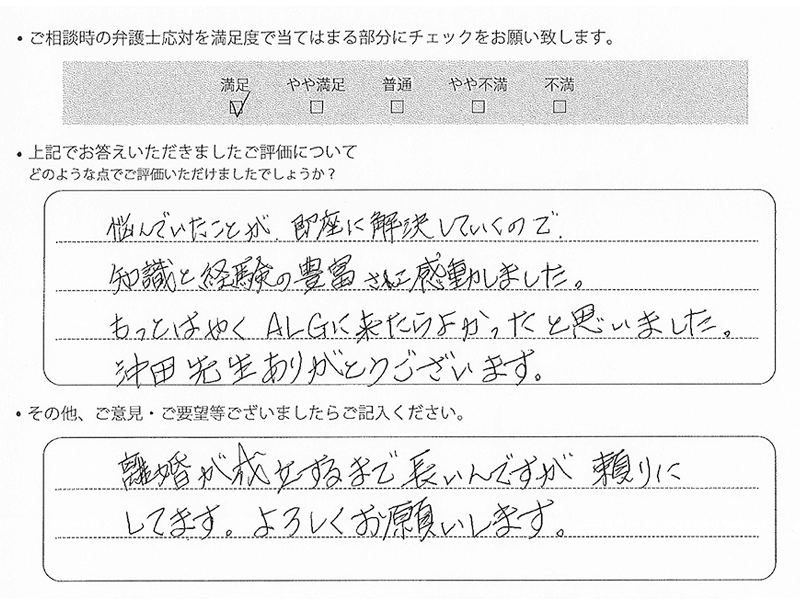 ・ご相談時の弁護士応対を満足度で当てはまる部分にチェックをお願い致します。
満足 やや満足 普通 やや不満 不満
☑ □ □ □ □
・上記でお答えいただきましたご評価について
どのような点でご評価いただけましたでしょうか？
悩んでいたことが、即座に解決していくので、
知識と経験の豊富さに感動しました。
もっとはやくALGに来たらよかったと思いました。
沖田先生ありがとうございます。
・その他、ご意見・ご要望等ございましたらご記入ください。
離婚が成立するまで長いんですが頼りに
してます。よろしくお願いします。